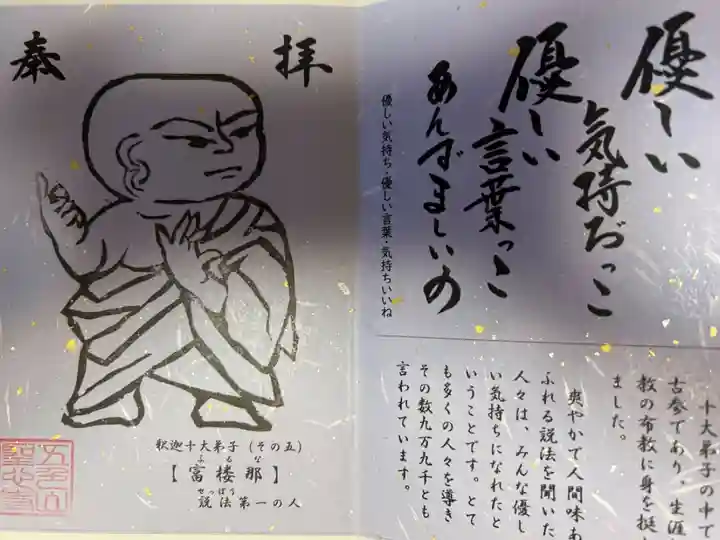 奉
拝
釈迦十大弟子（その五）
ふるな
【富楼那】
せっぽう
説法第一の人
優しい
気持ぢっこ
優しい
言葉っこ
あんずましいの
優しい気持ち・優しい言葉・気持ちいいね
十大弟子の中で
古参であり、生涯
教の布教に身を挺
ました。
爽やかで人間味あ
ふれる説法を聞いた
人々は、みんな優し
い気持ちになれたと
いうことです。とて
も多くの人々を導き
その数九万九千とも
言われています。